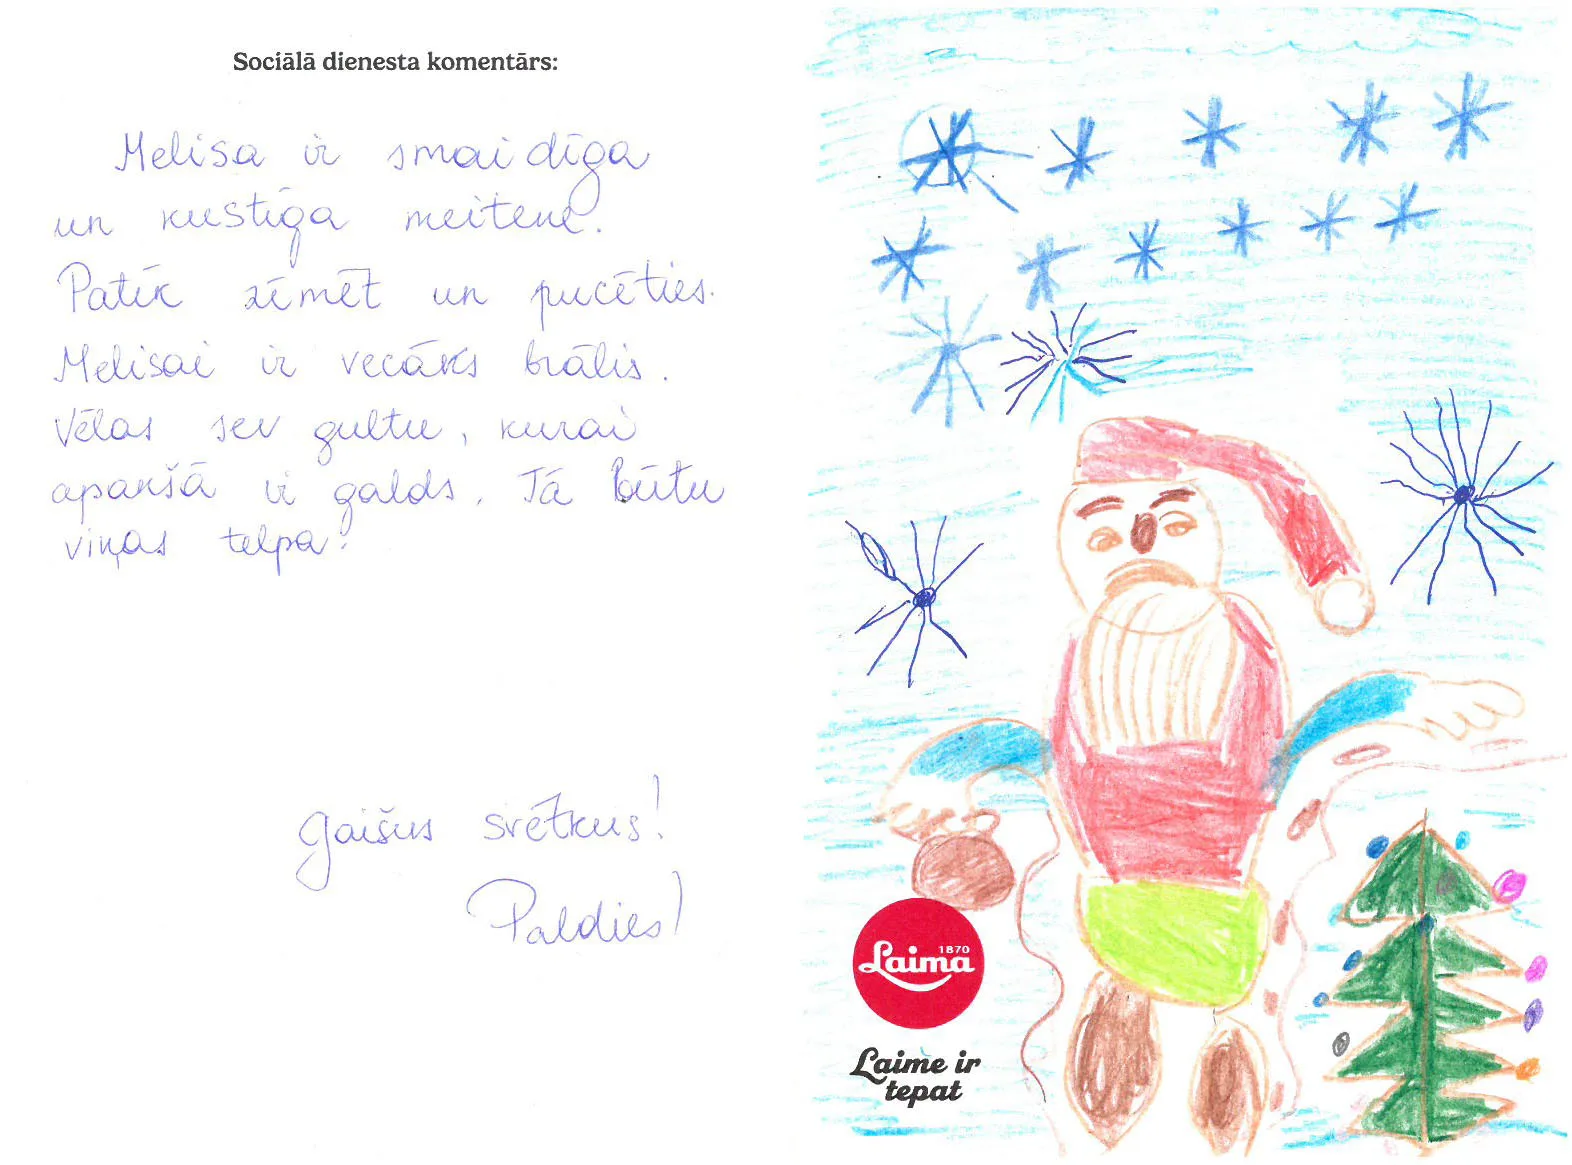 Sociālā dienesta komentārs:
Melisa ir smaidīga
un kustīga meitene.
Patīk zīmēt un pucēties.
Melisai ir vecāks brālis.
Vēlas sev gultu, kurai
apakšā ir galds. Tā būtu
viņas telpa!
Gaišus svētkus!
Paldies!
1870
Laima
Laime ir
tepat